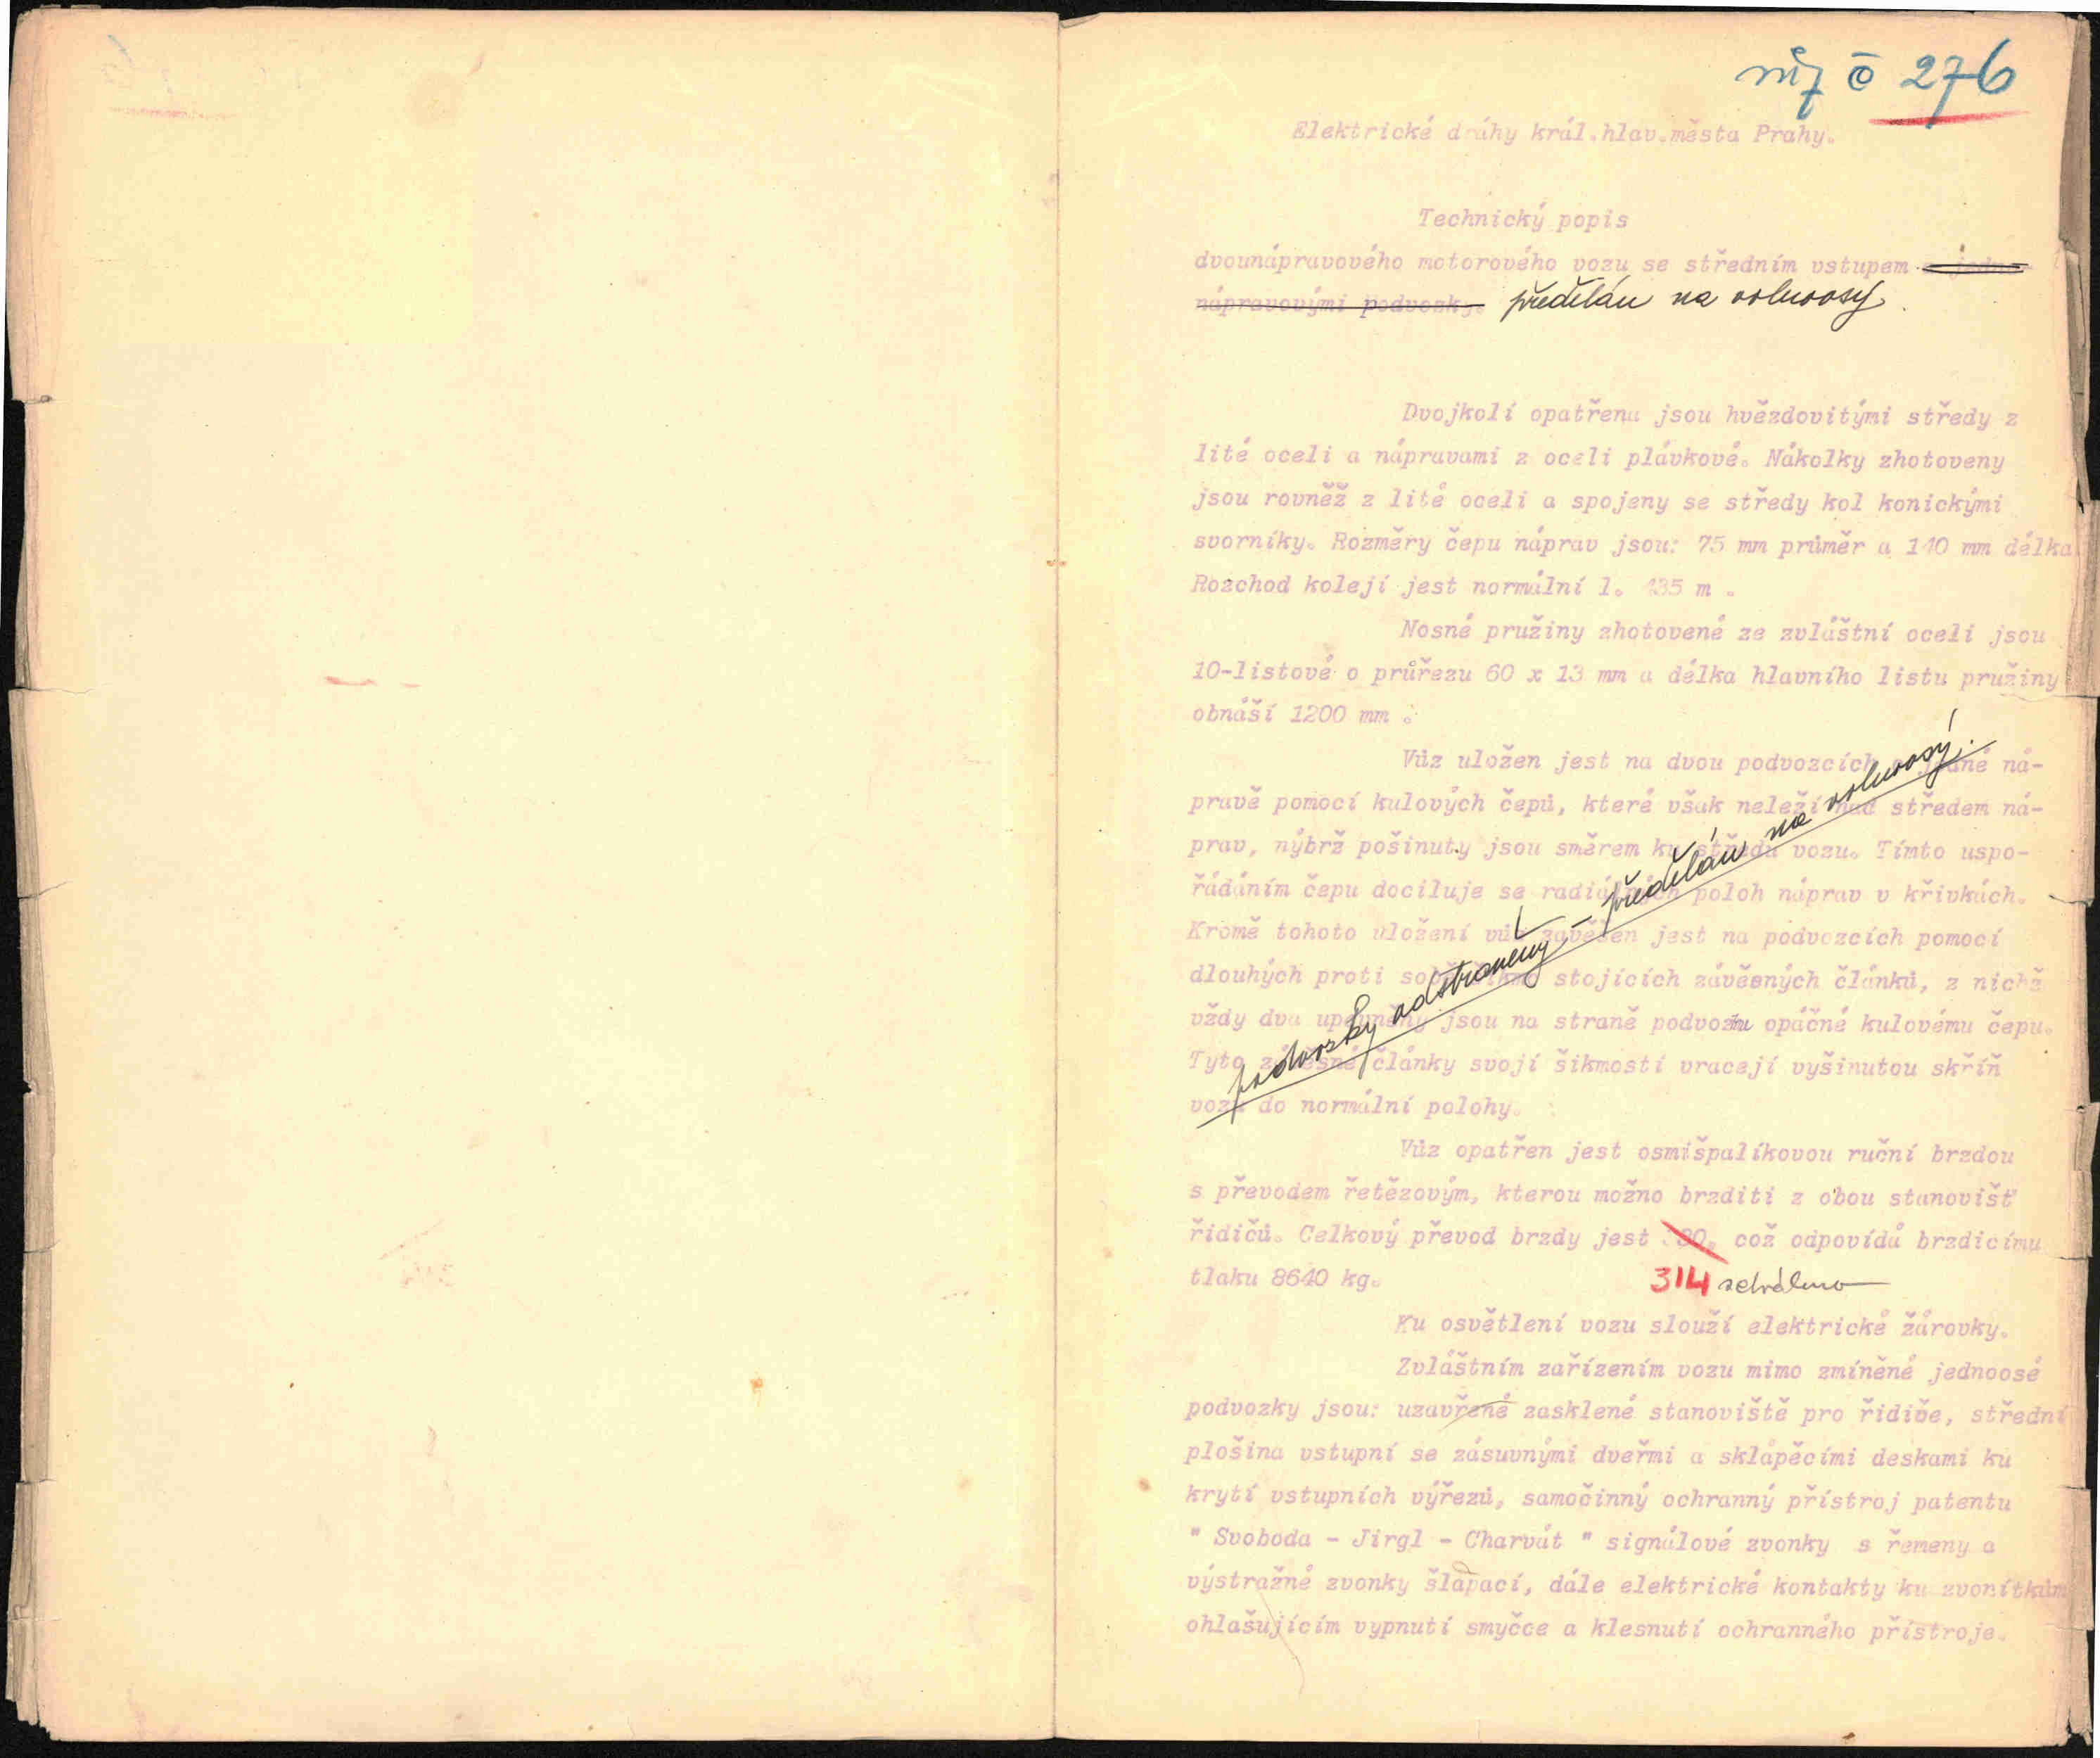 mz č 276
Elektrické dráhy král.hlav.města Prahy.
Technický popis
dvounápravového motorového vozu se středním vstupem s jedno-
nápravovými podvozky. předělán na volnoosý.
Dvojkolí opatřena jsou hvězdovitými středy z
lité oceli a nápravami z oceli plávkové. Nákolky zhotoveny
jsou rovněž z lité oceli a spojeny se středy kol konickými
svorníky. Rozměry čepu náprav jsou: 75 mm průměr a 140 mm délka
Rozchod kolejí jest normální 1. 435 m .
Nosné pružiny zhotovené ze zvláštní oceli jsou
10-listové o průřezu 60 x 13 mm a délka hlavního listu pružiny
obnáší 1200 mm .
Vůz uložen jest na dvou podvozcích o jedné ná-
pravě pomocí kulových čepů, které však neleží nad středem ná-
prav, nýbrž pošinuty jsou směrem ku středu vozu. Tímto uspo-
řádáním čepu dociluje se radiálních poloh náprav v křivkách.
Kromě tohoto uložení vůz zavěšen jest na podvozcích pomocí
dlouhých proti sobě šikmo stojících závěsných článků, z nichž
vždy dva upevněny jsou na straně podvozku opáčné kulovému čepu.
Tyto závěsné články svojí šikmostí vracejí vyšinutou skříň
vozu do normální polohy.
podvozky odstraněny, - předělán na volnoosý.
Vůz opatřen jest osmišpalíkovou ruční brzdou
s převodem řetězovým, kterou možno brzditi z obou stanovišť
řidičů. Celkový převod brzdy jest což odpovídá brzdicímu
tlaku 8640 kg.
314
Ku osvětlení vozu slouží elektrické žárovky.
Zvláštním zařízením vozu mimo zmíněné jednoosé
podvozky jsou: uzavřené zasklené stanoviště pro řidiče, střední
plošina vstupní se zásuvnými dveřmi a sklápěcími deskami ku
krytí vstupních výřezů, samočinný ochranný přístroj patentu
" Svoboda - Jirgl - Charvát " signálové zvonky s řemeny a
výstražné zvonky šlapací, dále elektrické kontakty ku zvonítkům
ohlašujícím vypnutí smyčce a klesnutí ochranného přístroje.